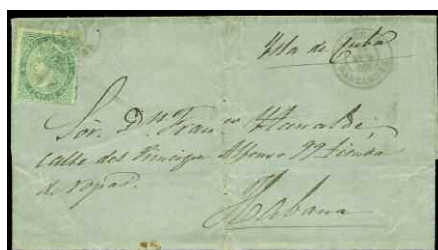 Isla de Cuba
Sor. Dn. Franco
calle del Principe Alfonso 99 tienda
de ropas.
Habana